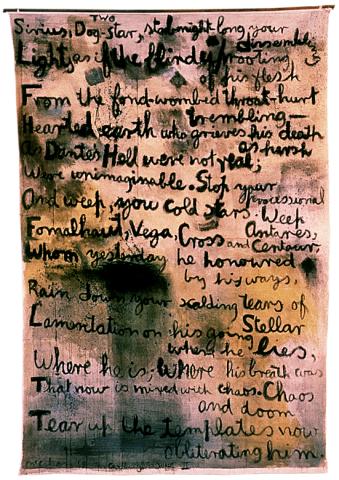 TWO
Sirius, Dog-star, stab night-long your
dissembling
Lights, as if the blinded, rooting
of his flesh
From the fond-wombed throat-hurt
trembling—
Hearted earth who grieves his death
as harsh
As Dante's Hell were not real;
Were unimaginable. Stop your
processional
And weep, you cold stars. Weep
Antares,
Fomalhaut, Vega, Cross and Centaur,
Whom yesterday he honoured
by his ways,
Rain down your scalding tears of
Stellar
Lamentation on his going
where he lies,
Where he is; Where his breath was
That now is mixed with chaos. Chaos
and doom
Tear up the templates now
obliterating him.